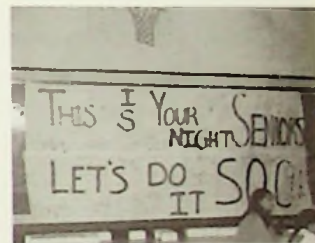 THIS IS YOUR NIGHT SENIORS
LET'S DO IT